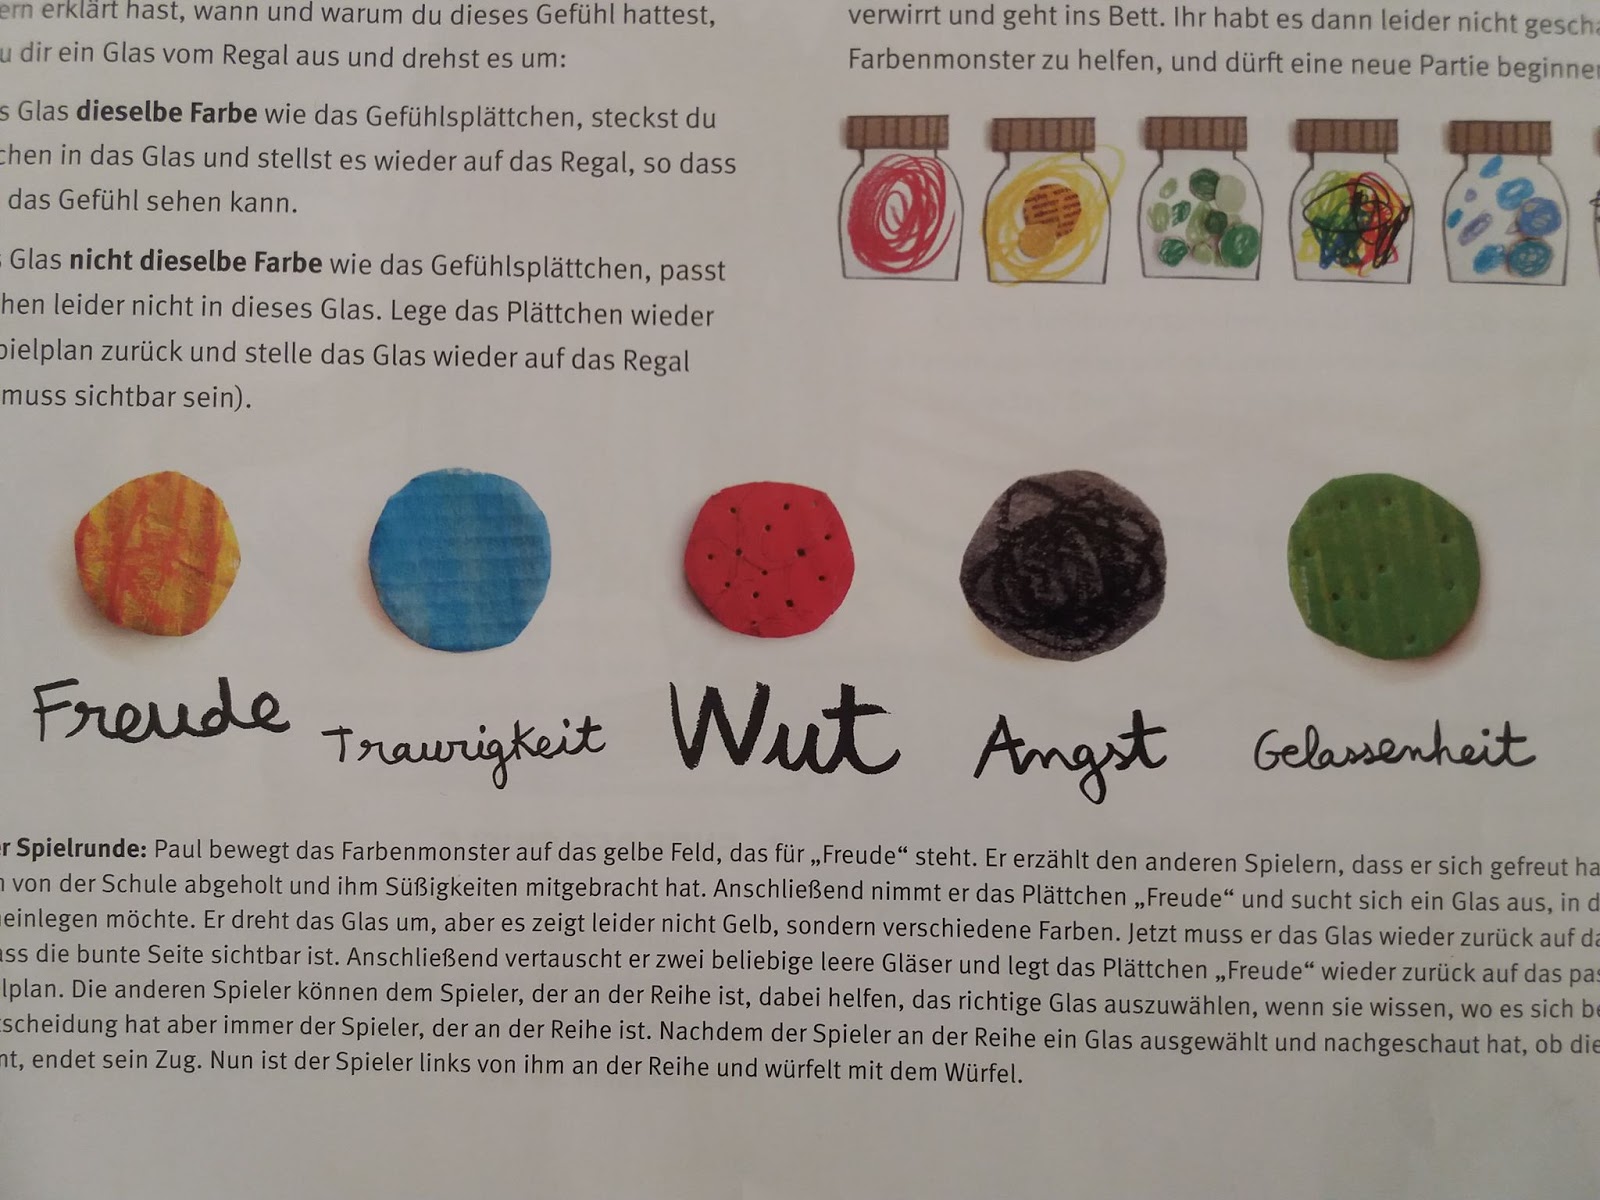 ern erklärt hast, wann und warum du dieses Gefühl hattest,
u dir ein Glas vom Regal aus und drehst es um:
s Glas dieselbe Farbe wie das Gefühlsplättchen, steckst du
chen in das Glas und stellst es wieder auf das Regal, so dass
das Gefühl sehen kann.
s Glas nicht dieselbe Farbe wie das Gefühlsplättchen, passt
hen leider nicht in dieses Glas. Lege das Plättchen wieder
pielplan zurück und stelle das Glas wieder auf das Regal
muss sichtbar sein).
verwirrt und geht ins Bett. Ihr habt es dann leider nicht gescha
Farbenmonster zu helfen, und dürft eine neue Partie beginnen
Freude
Traurigkeit
Wut
Angst
Gelassenheit
er Spielrunde: Paul bewegt das Farbenmonster auf das gelbe Feld, das für „Freude“ steht. Er erzählt den anderen Spielern, dass er sich gefreut ha
n von der Schule abgeholt und ihm Süßigkeiten mitgebracht hat. Anschließend nimmt er das Plättchen „Freude“ und sucht sich ein Glas aus, in d
neinlegen möchte. Er dreht das Glas um, aber es zeigt leider nicht Gelb, sondern verschiedene Farben. Jetzt muss er das Glas wieder zurück auf da
ass die bunte Seite sichtbar ist. Anschließend vertauscht er zwei beliebige leere Gläser und legt das Plättchen „Freude“ wieder zurück auf das pas
lplan. Die anderen Spieler können dem Spieler, der an der Reihe ist, dabei helfen, das richtige Glas auszuwählen, wenn sie wissen, wo es sich be
tscheidung hat aber immer der Spieler, der an der Reihe ist. Nachdem der Spieler an der Reihe ein Glas ausgewählt und nachgeschaut hat, ob die
nt, endet sein Zug. Nun ist der Spieler links von ihm an der Reihe und würfelt mit dem Würfel.